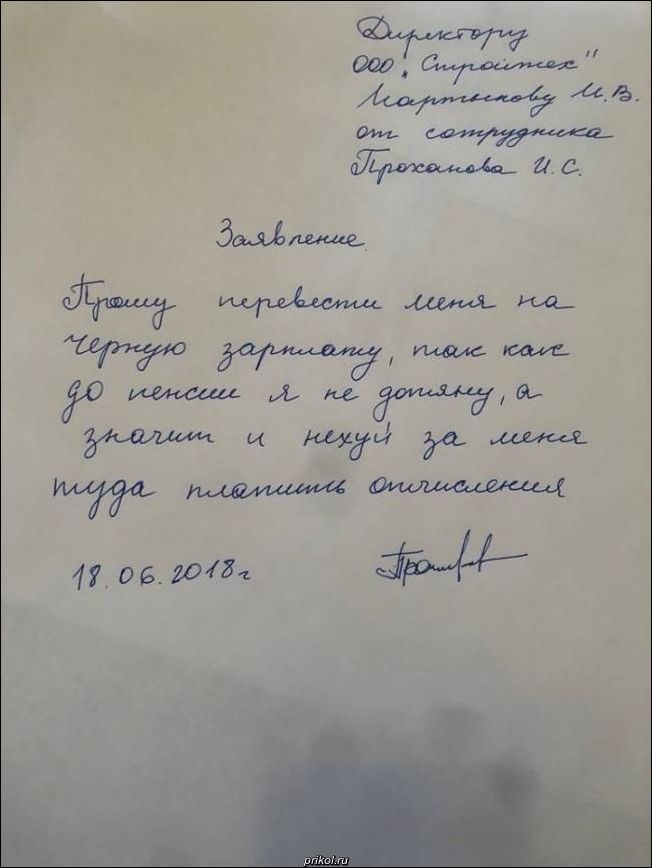 Директору
ООО "Стройтех"
Мартынову И.В.
от сотрудника
Проханова И.С.
Заявление.
Прошу перевести меня на
черную зарплату, так как
до пенсии я не дотяну, а
значит и нехуй за меня
туда платить отчисления
18.06.2018г
prikol.ru